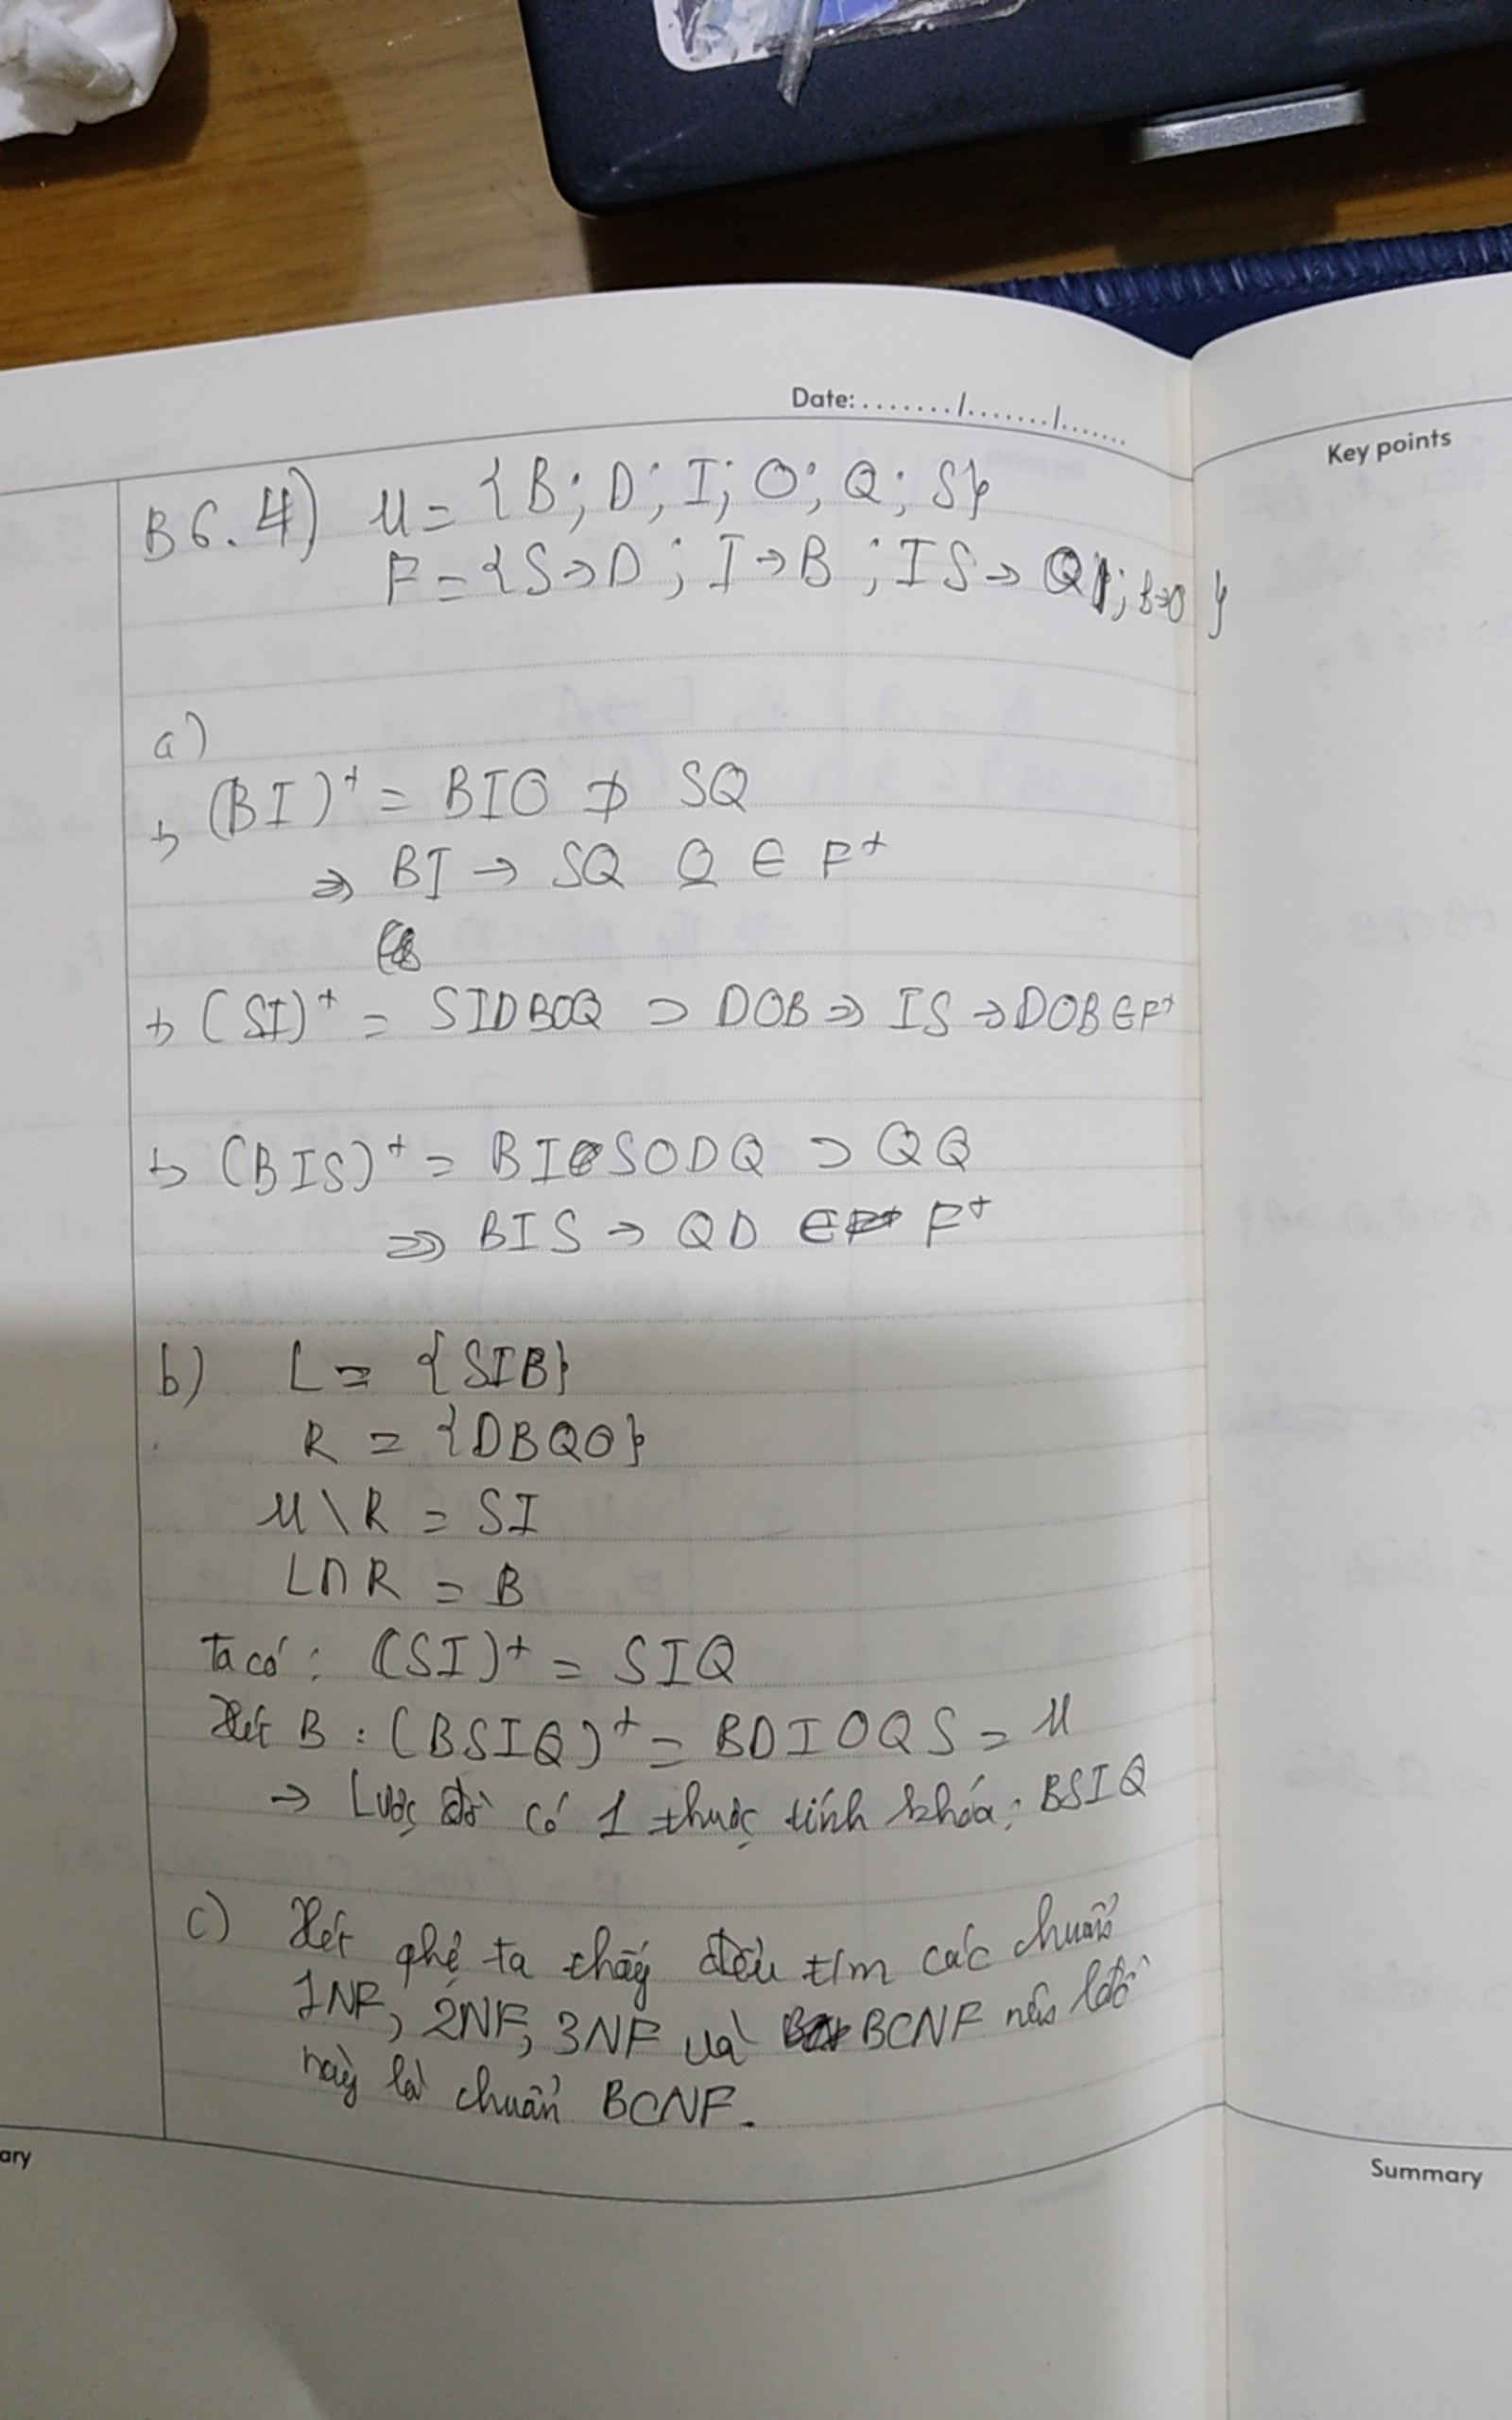 Date: ......./......./.......
Key points
B6.4) U = {B; D; I; O; Q; S}
F = {S → D; I → B; IS → Q; B→O }
a)
+) (BI)⁺ = BIO ⊅ SQ
⇒ BI → SQ ∉ F⁺
+) (SI)⁺ = SIDBOQ ⊃ DOB ⇒ IS → DOB ∈ F⁺
+) (BIS)⁺ = BISODQ ⊃ QD
⇒ BIS → QD ∈ F⁺
b) L = {SIB}
R = {DBQO}
U \ R = SI
L ∩ R = B
Ta có: (SI)⁺ = SIQ
Xét B : (BSIQ)⁺ = BDIOQS = U
→ Lược đồ có 1 thuộc tính khóa: BSIQ
c) Xét ta thấy đều tìm các chuẩn
1NF, 2NF, 3NF và BCNF nên lđồ
này là chuẩn BCNF.
ary
Summary